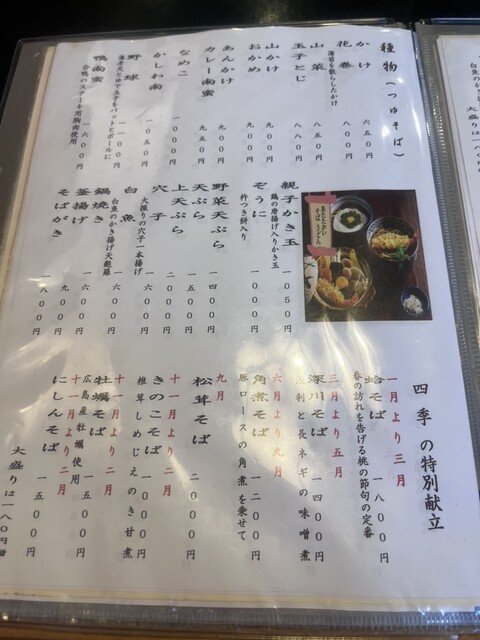 種物(つゆそば)
かけ 六五〇円
花巻 八五〇円
海苔を散らしたかけ
山菜 八五〇円
玉子とじ 八八〇円
山かけ 九〇〇円
おかめ 九〇〇円
あんかけ 九五〇円
カレー南蛮 九五〇円
なめこ 一〇〇〇円
かしわ南 一〇五〇円
野球 一一〇〇円
海老天とゆで玉子をバットとボールに
鴨南蛮 一六〇〇円
合鴨のステーキ用胸肉使用
親子かき玉 一〇五〇円
鶏の唐揚げ入りかき玉
ぞうに 一〇〇〇円
杵つき餅入り
野菜天ぷら 一四〇〇円
天ぷら 一五〇〇円
上天ぷら 二〇〇〇円
穴子 一六〇〇円
大振りの穴子一本揚げ
白魚 一六〇〇円
白魚のかき揚げ天麩羅
鍋焼き 一六〇〇円
釜揚げ 九〇〇円
そばがき 一八〇〇円
四季の特別献立
一月より三月
蛤そば 一八〇〇円
春の訪れを告げる桃の節句の定番
三月より五月
深川そば 一四〇〇円
浅利と長ネギの味噌煮
六月より九月
角煮そば 一二〇〇円
豚ロースの角煮を乗せて
九月
松茸そば 二〇〇〇円
十一月より二月
きのこそば 一〇〇〇円
椎茸しめじえのき甘煮
十一月より二月
牡蠣そば 一五〇〇円
広島産牡蠣使用
十一月より二月
にしんそば 一五〇〇円
大盛りは一八〇円増